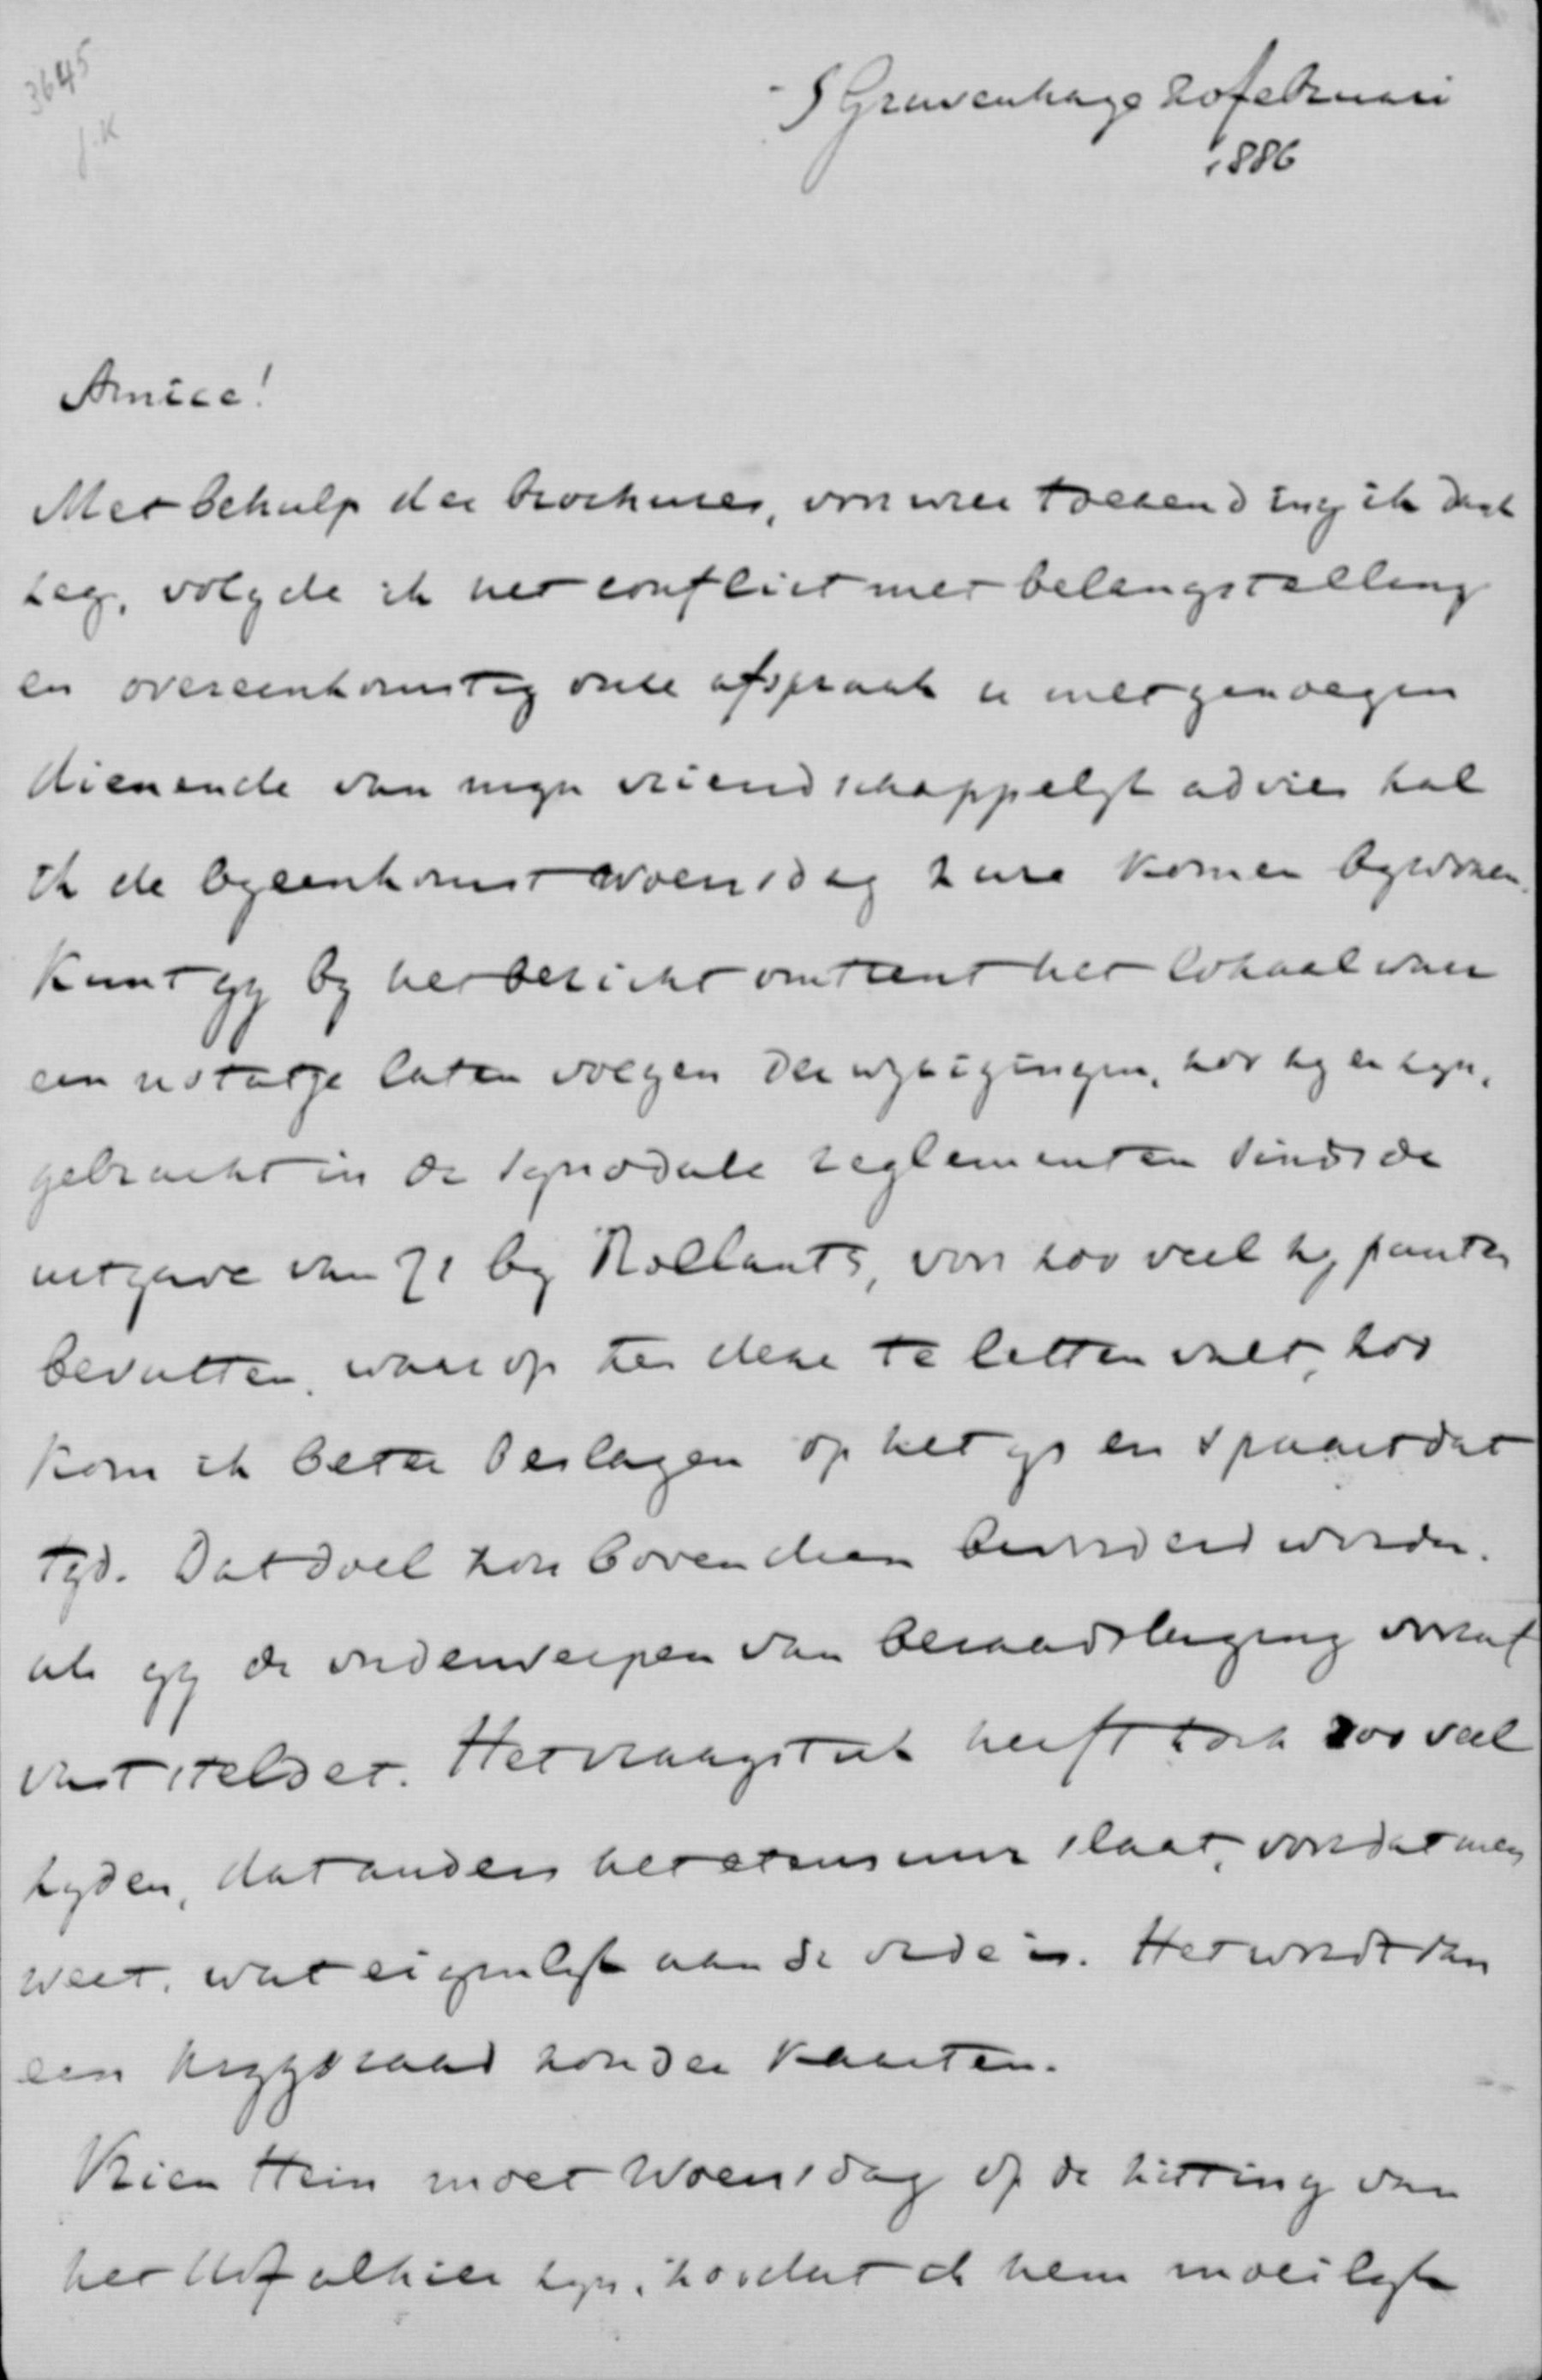 3645
J. K
'S Gravenhage 20 februari
1886
Amice!
Met behulp der brochures, voor wier toezending ik dank
zeg, volgde ik het conflict met belangstelling
en overeenkomstig onze afspraak u met genoegen
dienende van mijn vriendschappelijk advies zal
ik de bijeenkomst Woensdag 2 ure komen bijwonen.
Kunt gij bij het bericht omtrent het lokaal voor
een notatje laten voegen der wijzigingen, zoo zij er zijn,
gebracht in de synodale reglementen sinds de
uitgave van 71 bij Noëllaats, voor zoo veel zij punten
bevatten, waarop ten deze te letten valt, zoo
kom ik beter beslagen op het ijs en spaart dat
tijd. Dat doel zou bovendien bevorderd worden.
als gij de onderwerpen van beraadslaging vooraf
vaststeldet. Het vraagstuk heeft toch zoo veel
zijden, dat anders het etensuur slaat, voordat men
weet, wat eigenlijk aan de orde is. Het wordt dan
een krijgsraad zonder kaarten.
Hein moet Woensdag op de zitting van
het Hof alhier zijn, zoodat ik hem moeilijk